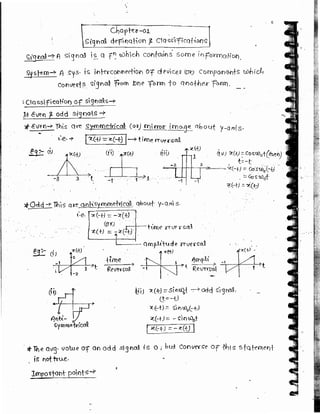 Chapter-01
Signal defination & Classifications
Signal → A signal is a fⁿ which contains some information.
System → A sys. is interconnection of devices (or) components which
converts signal from one form to another form.
① Classification of signals →
Even & odd signals →
* Even → This are symmetrical (or) mirror image about y-axis.
i.e. → x(t) = x(-t) → time reversal
Eg:- (i) x(t) (ii) x(t) (iii) x(t) (iv) x(t) = cos ω₀t (even)
t = -t
x(-t) = cos ω₀(-t)
= cos ω₀t
x(-t) = x(t)
* Odd → This are antisymmetrical about y-axis
i.e. x(-t) = -x(t)
(or)
x(t) = -x(-t) time reversal
amplitude reversal
Eg:- (i) x(t) time Reversal Ampli Reversal
(ii) (iii) x(t) = sin ω₀t → odd signal.
(t = -t)
x(-t) = sin ω₀(-t)
Anti- x(-t) = - sin ω₀t
Symmetrical x(-t) = - x(t)
* The avg. value of an odd signal is 0, but converse of this statement
is not true.
Important points →